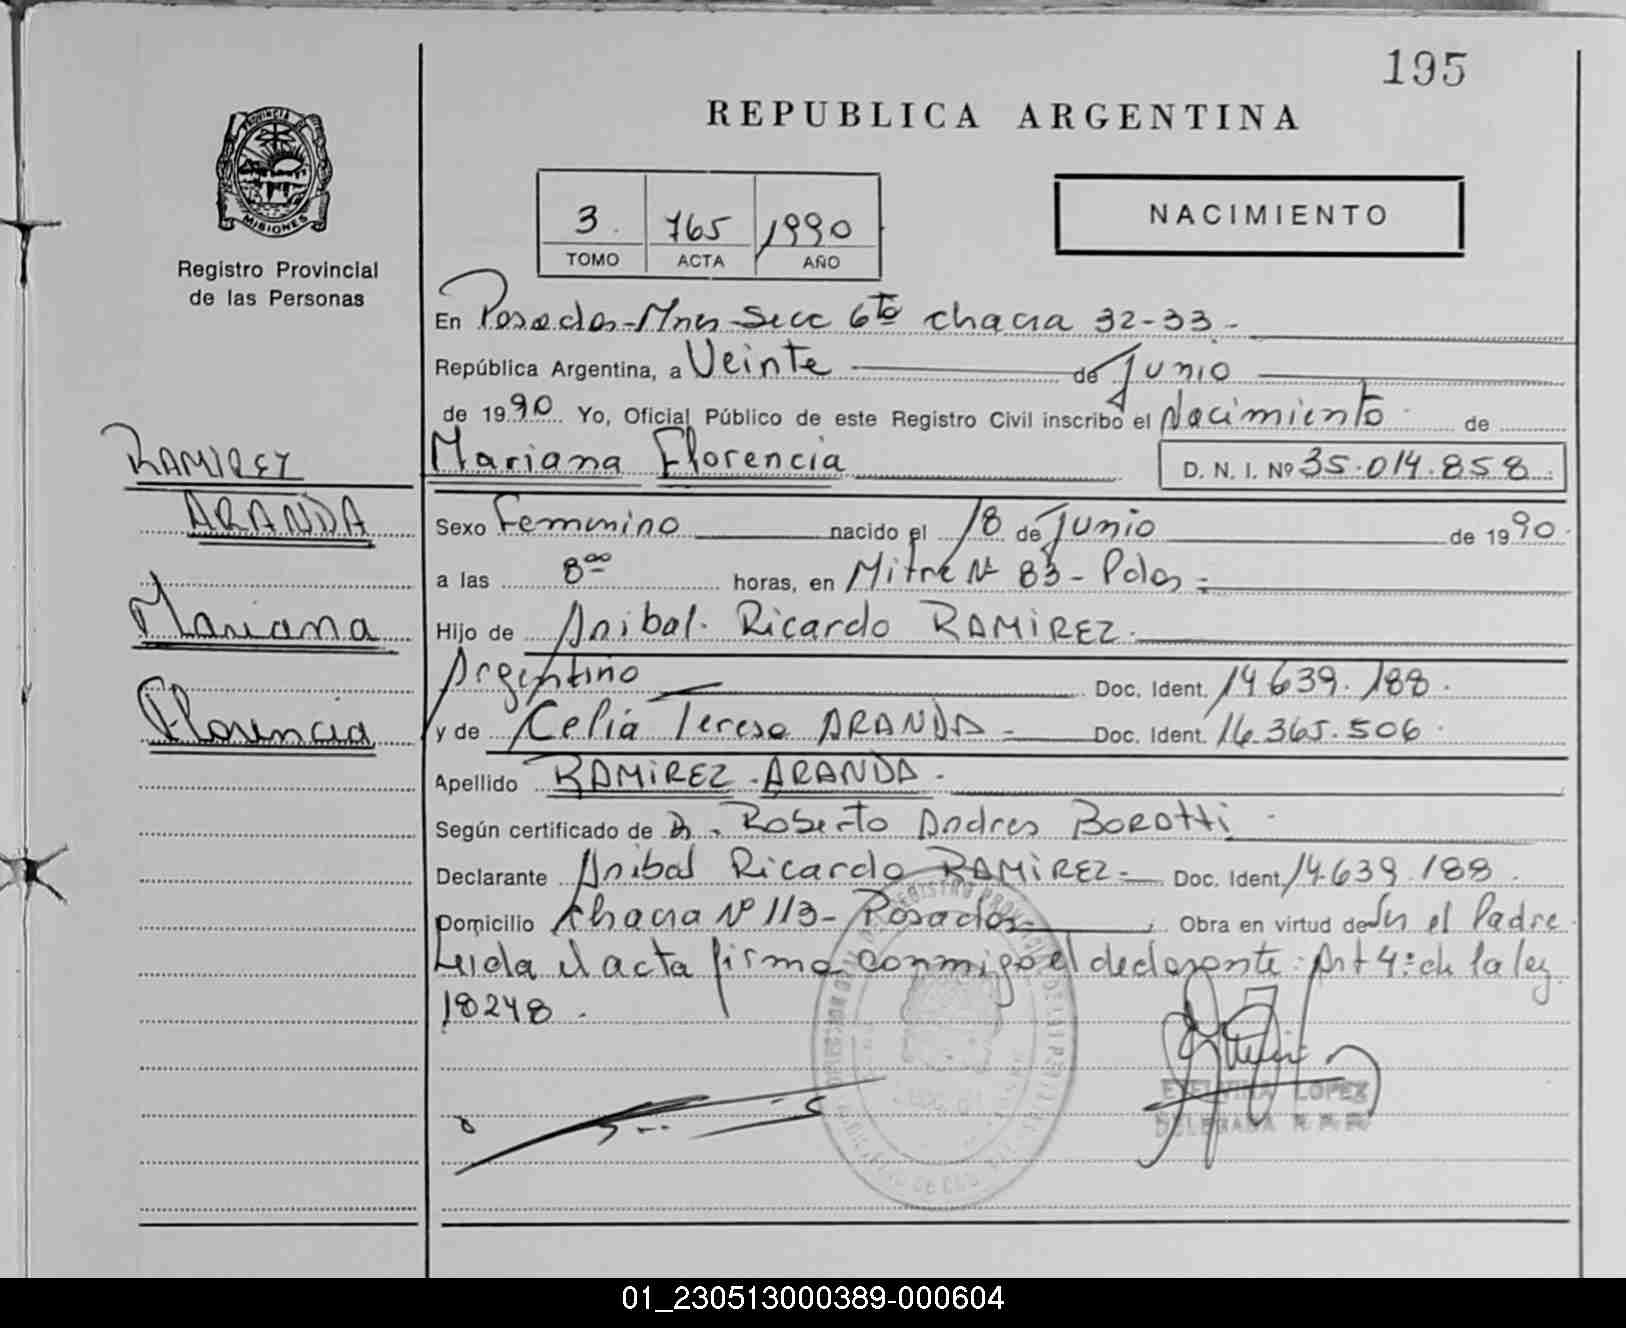 195
REPUBLICA ARGENTINA
PROVINCIA DE
MISIONES
Registro Provincial
de las Personas
3. 765 1990
TOMO ACTA AÑO
NACIMIENTO
En Posadas-Mnes Secc 6ta chacra 32-33-
República Argentina, a Veinte de Junio
de 1990 Yo, Oficial Público de este Registro Civil inscribo el Nacimiento de
RAMIREZ
Mariana Florencia D. N. I. Nº 35.014.858
ARANDA
Sexo Femenino nacido el 18 de Junio de 1990
a las 8 00 horas, en Mitre Nº 83-Pdas
Mariana
Hijo de Anibal Ricardo RAMIREZ
Argentino Doc. Ident. 14.639.188.
Florencia
y de Celia Teresa ARANDA- Doc. Ident. 16.365.506
Apellido RAMIREZ-ARANDA.
Según certificado de Dr. Roberto Andres BOROTTI
Declarante Anibal Ricardo RAMIREZ- Doc. Ident. 14.639.188.
Domicilio Chacra Nº 113-Posadas- Obra en virtud de Ser el Padre
Leida el acta firma conmigo el declarante: Art 4º de la ley
18248.
LOPEZ
DELEGADA
01_230513000389-000604